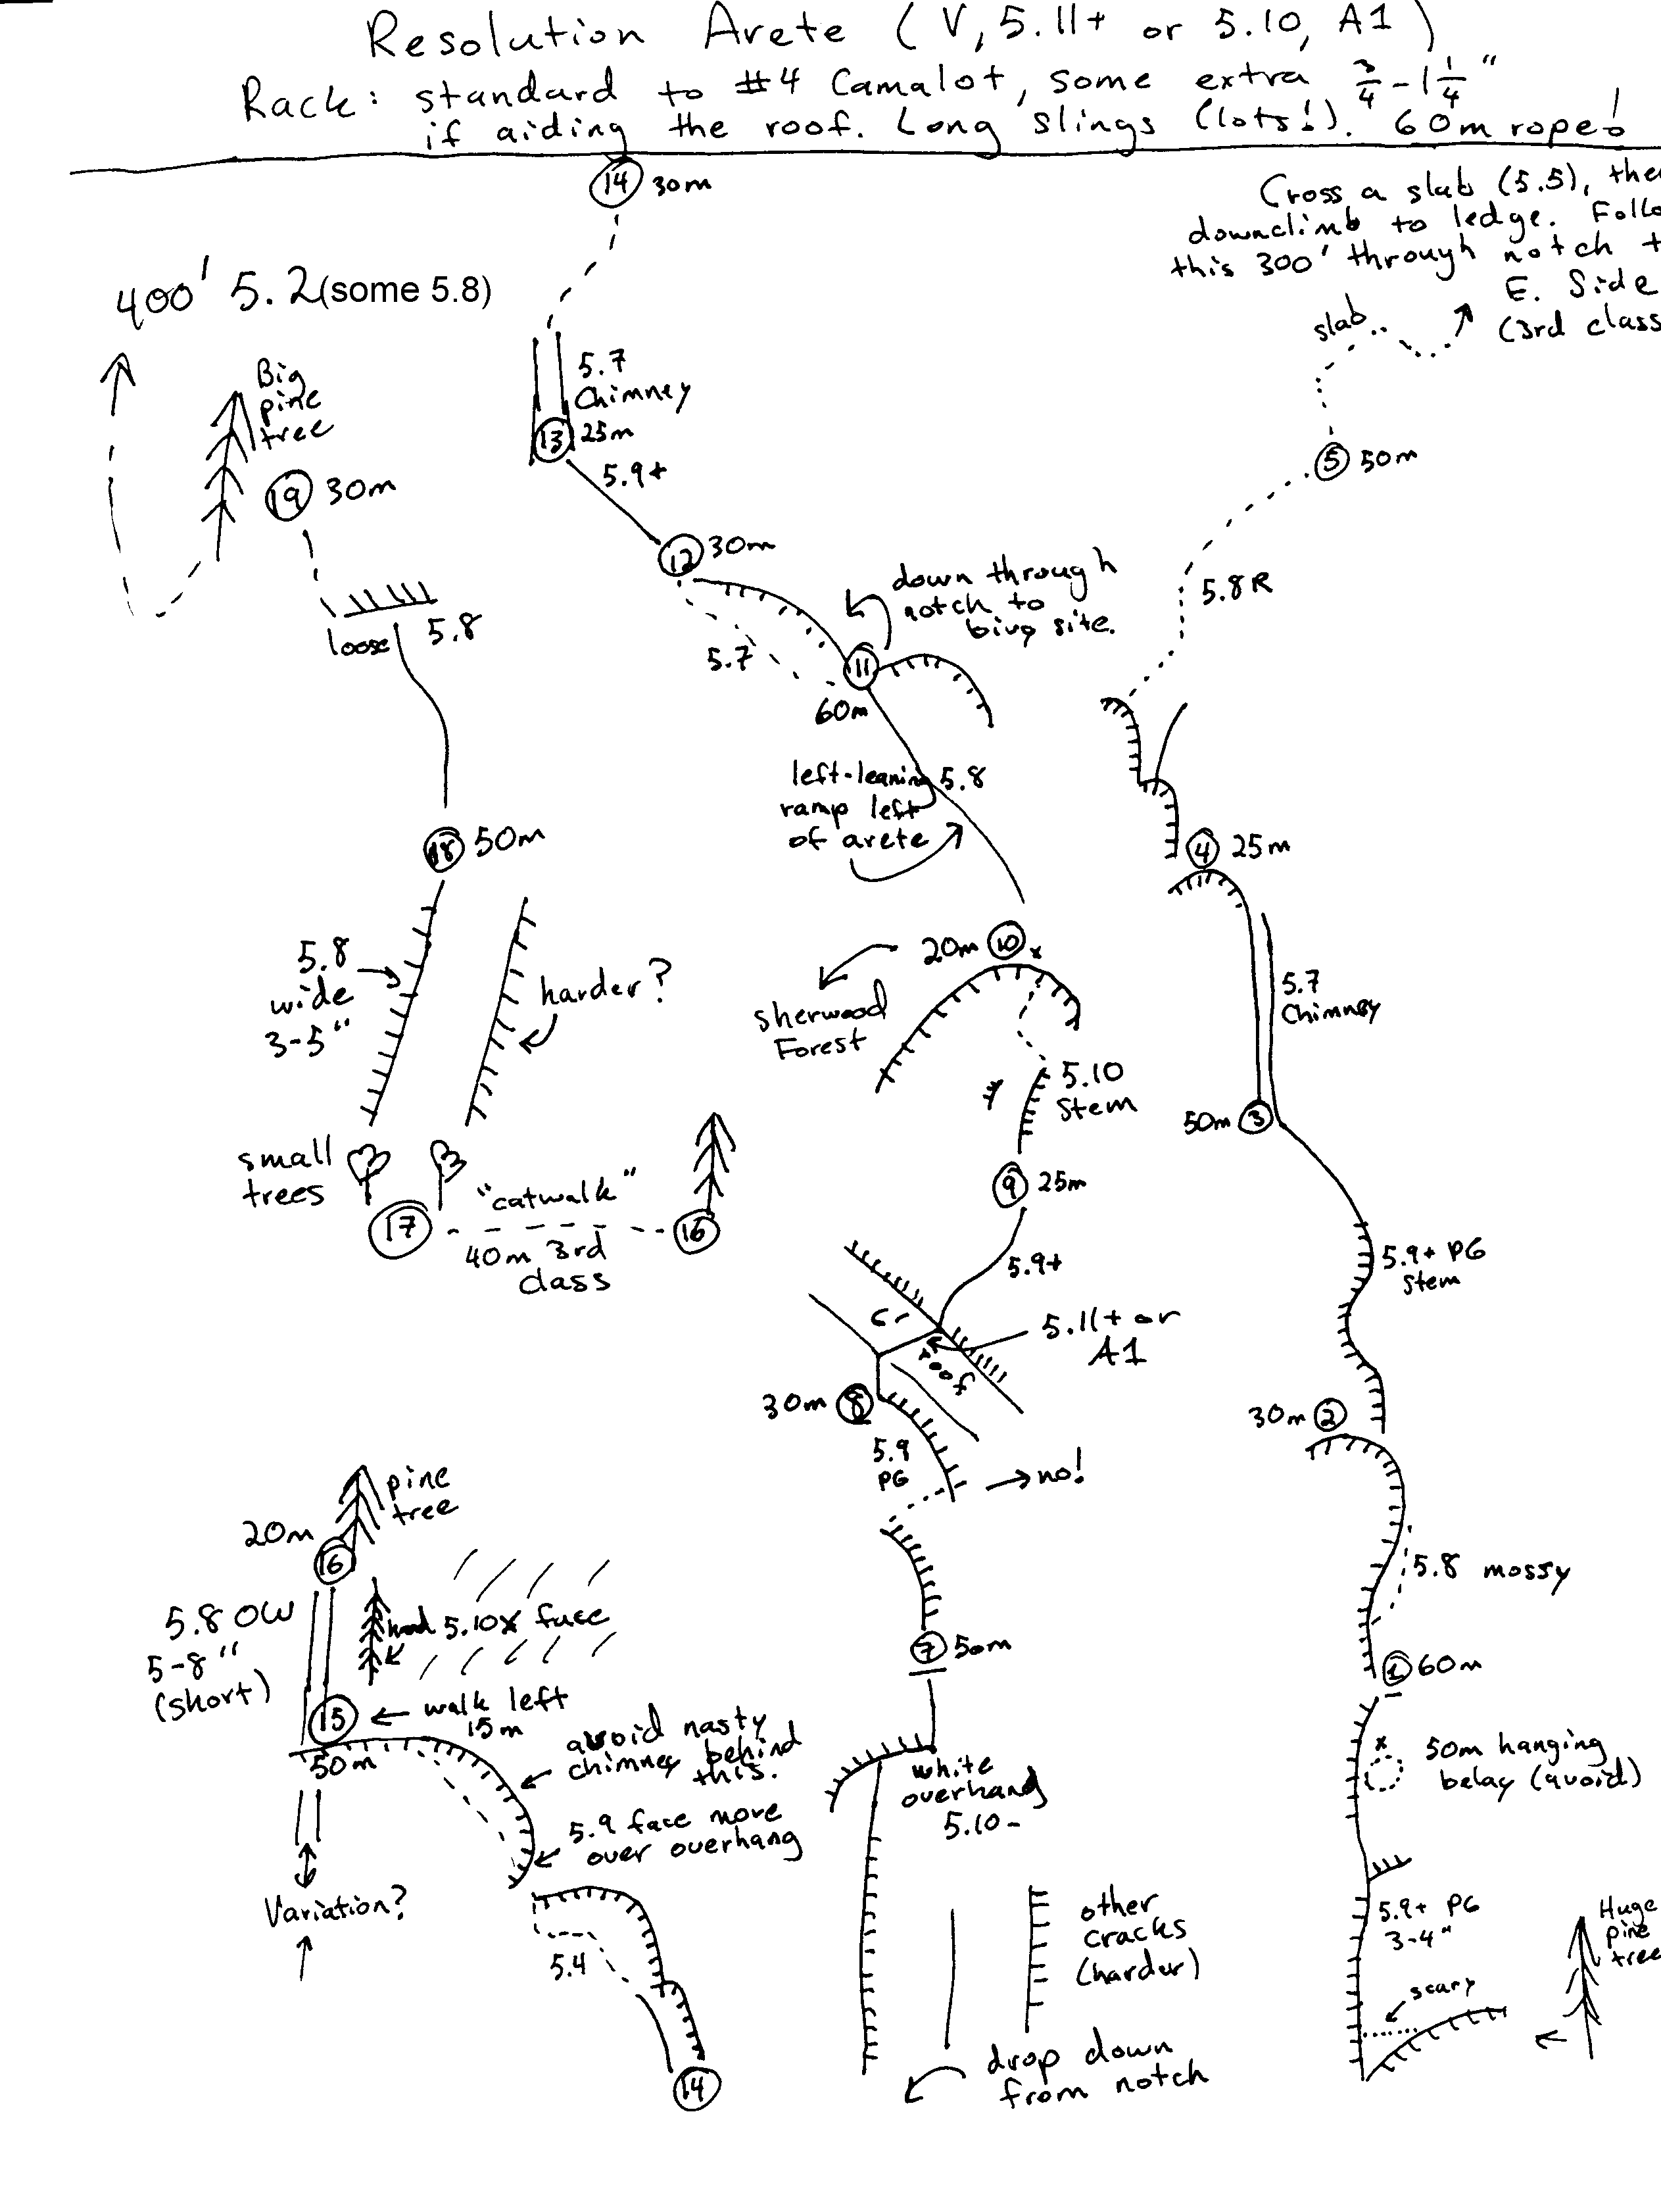 Resolution Arete (V, 5.11+ or 5.10, A1)
Rack: standard to #4 Camalot, some extra 3/4 - 1 1/4"
if aiding the roof. Long slings (lots!). 60m rope!
14 30m
400' 5.2 (some 5.8)
Big
pine
tree
19 30m
loose 5.8
18 50m
5.8
wide
3-5"
harder?
small
trees
17
"catwalk"
40m 3rd
class
16
pine
tree
20m
16
5.8 OW
5-8"
(short)
5.10X face
15
walk left
15m
50m
avoid nasty
chimney behind
this.
5.9 face move
over overhang
Variation?
5.4
14
5.7
Chimney
13 25m
5.9+
12 30m
down through
notch to
bivy site.
5.7
11
60m
left-leaning
ramp left
of arete
5.8
20m 10
x
Sherwood
Forest
5.10
Stem
9 25m
5.9+
6'
roof
5.11+ or
A1
30m 8
5.9
PG
no!
7 50m
white
overhang
5.10-
other
cracks
(harder)
drop down
from notch
Cross a slab (5.5), the
downclimb to ledge. Follo
this 300' through notch t
E. Side
(3rd class
slab
5 50m
5.8 R
4 25m
5.7
Chimney
50m 3
5.9+ PG
Stem
30m 2
5.8 mossy
1 60m
x
50m hanging
belay (avoid)
5.9+ PG
3-4"
scary
Huge
pine
tree